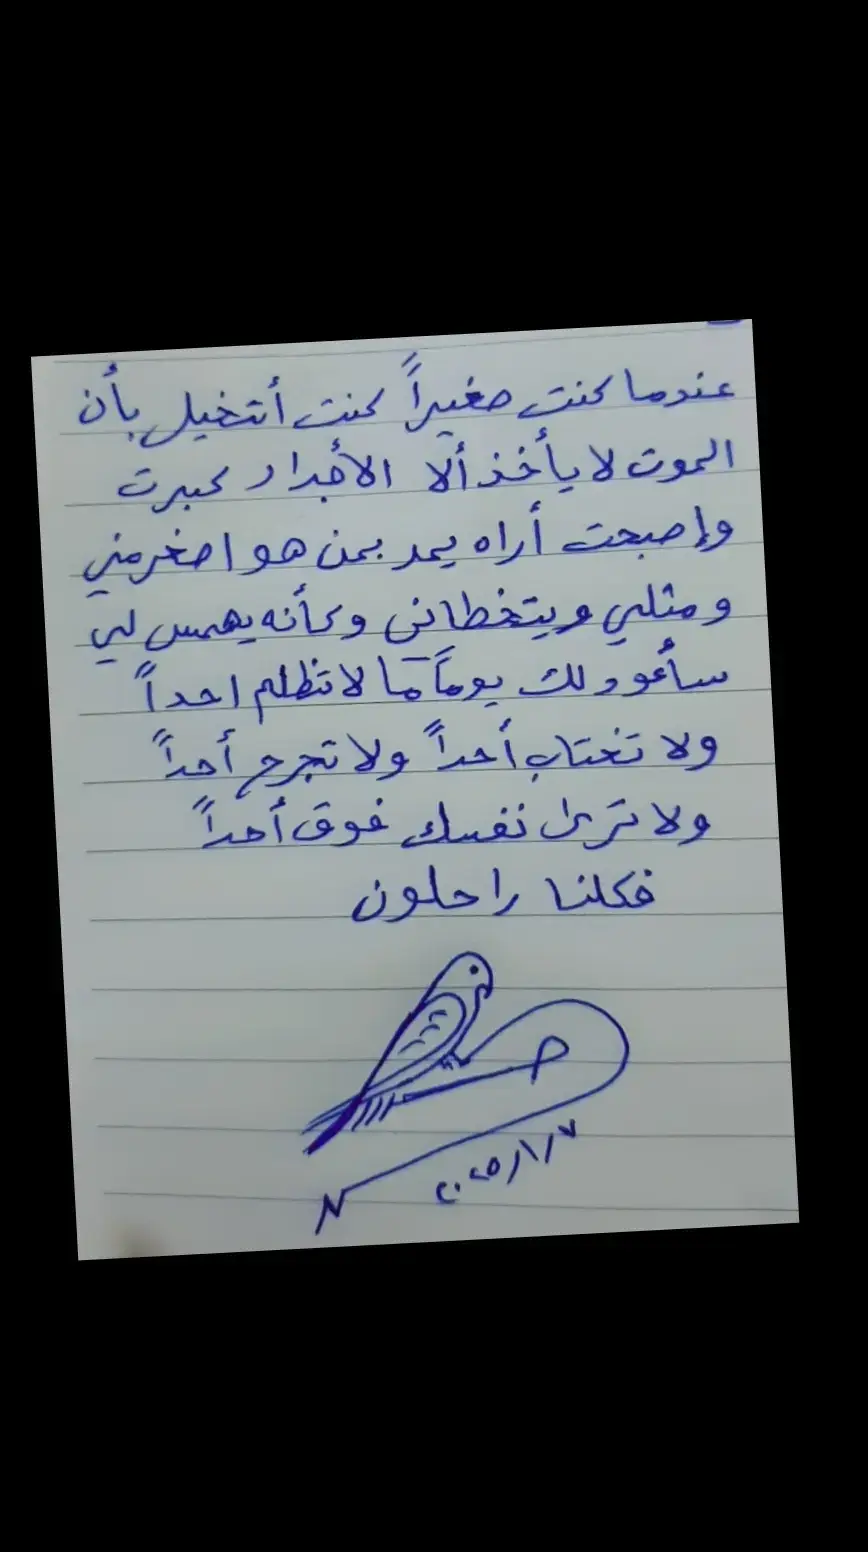 عندما كنت صغيراً كنت أتخيل بأن
الموت لا يأخذ ألا الأجداد كبرت
وإصبحت أراه يمد بمن هو اصغر مني
ومثلي ويتخطاني وكأنه يهمس لي
سأعود لك يوماً ما لا تظلم احداً
ولا تغتاب أحداً ولا تجرح أحداً
ولا ترى نفسك فوق أحداً
فكلنا راحلون
٢٠٢٥/١/٧